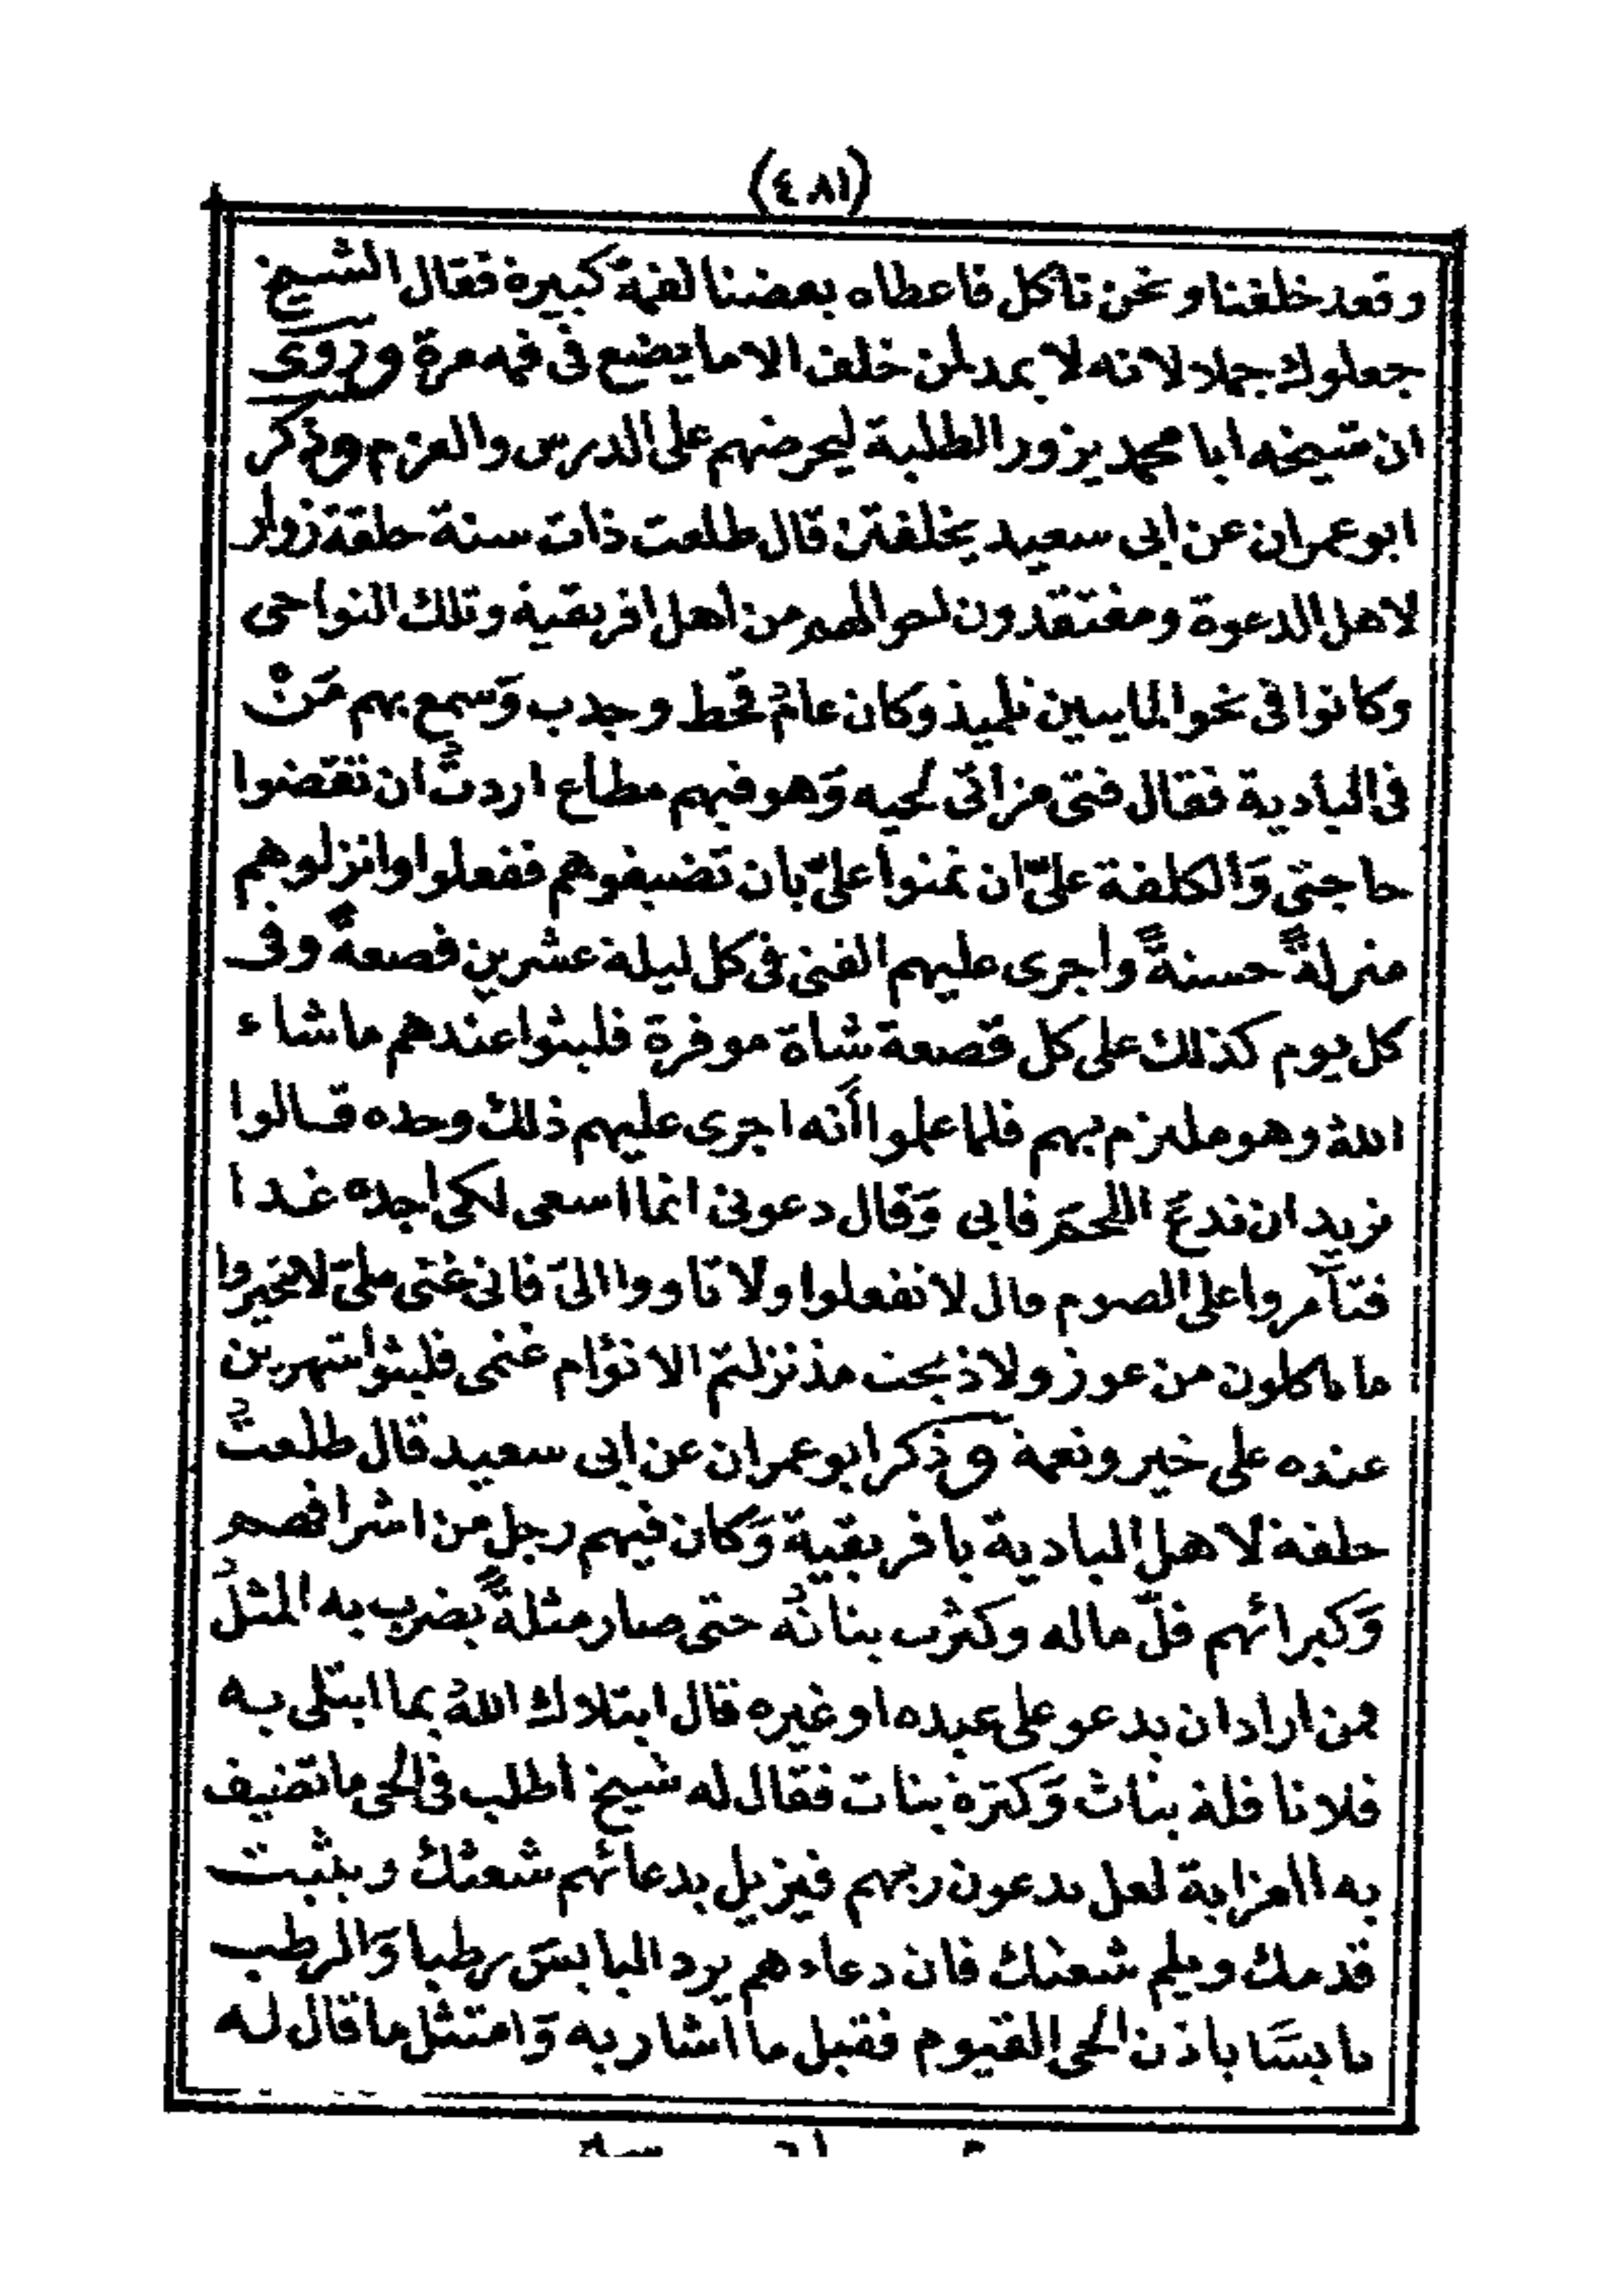 (٤٨١)
وقعد خلفنا ونحن نأكل فاعطاه بعضنا لقمة كبيرة فقال الشيخ
جعلوك جملا لانه لا يمد لمن خلف الا ما يضع فى فمه مرة وروى
ان شيخه ابا محمد يزور الطلبة ليحرضهم على الدرس والعزم وذكر
ابو عمران عن ابى سعيد يخلفتن قال طلعت ذات سنة حلقة زوار
لاهل الدعوة ومفتقدون لحوالهم من اهل افريقية وتلك النواحى
وكانوا فى نحو المايبين تلميذ وكان عامُ قحط وجدب وَسمع بهم مَنْ
فى البادية فقال فتى مزاتى لحيه وَهو فيهم مطاع اردتُ ان تقضوا
حاجتى وَالكلفة علىّ ان تمنوا علىّ بان تَضيفوهم ففعلوا وانزلوهم
منزلةً حسنةً واجرى عليهم الفتى فى كل ليلة عشرين قصعةً وفى
كل يوم كذلك على كل قصعة شاة موفرة فلبثوا عندهم ما شاء
اللهُ وهو ملتزم بهم فلما علموا أنه اجرى عليهم ذلك وحده قالوا
نريد ان ندعَ اللحمَ فابى وَقال دعونى انما اسعى لكى اجده غدا
فتآمروا على الصوم قال لا تفعلوا ولا تاووا الىّ فانى غنى ملىّ لا تخيروا
ما تاكلون من عوز ولا ذبحت مذ نزلتم الا تؤام غنمى فلبثوا شهرين
عنده على خير ونعمة وذكر ابو عمران عن ابى سعيد قال طلعتُ
حلقة لاهل البادية بافريقية وَكان فيهم رجل من اشرافهم
وَكبرائهم قلّ ماله وكثرت بناتُه حتى صار مثلةً يضرب به المثلُ
فمن اراد ان يدعو على عبده او غيره قال ابتلاك اللهُ بما ابتلى به
فلانا قلة بنات وَكثرة بنات فقال له شيخ اطلب فى الحى ما تضيف
به العزابة لعل يدعون ربهم فيزيل بدعائهم شعثك ويثبت
قدمك ويلم شعثك فان دعاءهم يرد اليابسَ رطبا وَالرطب
يابسًا باذن الحى القيوم فقبل ما اشار به وَامتثل ما قال له